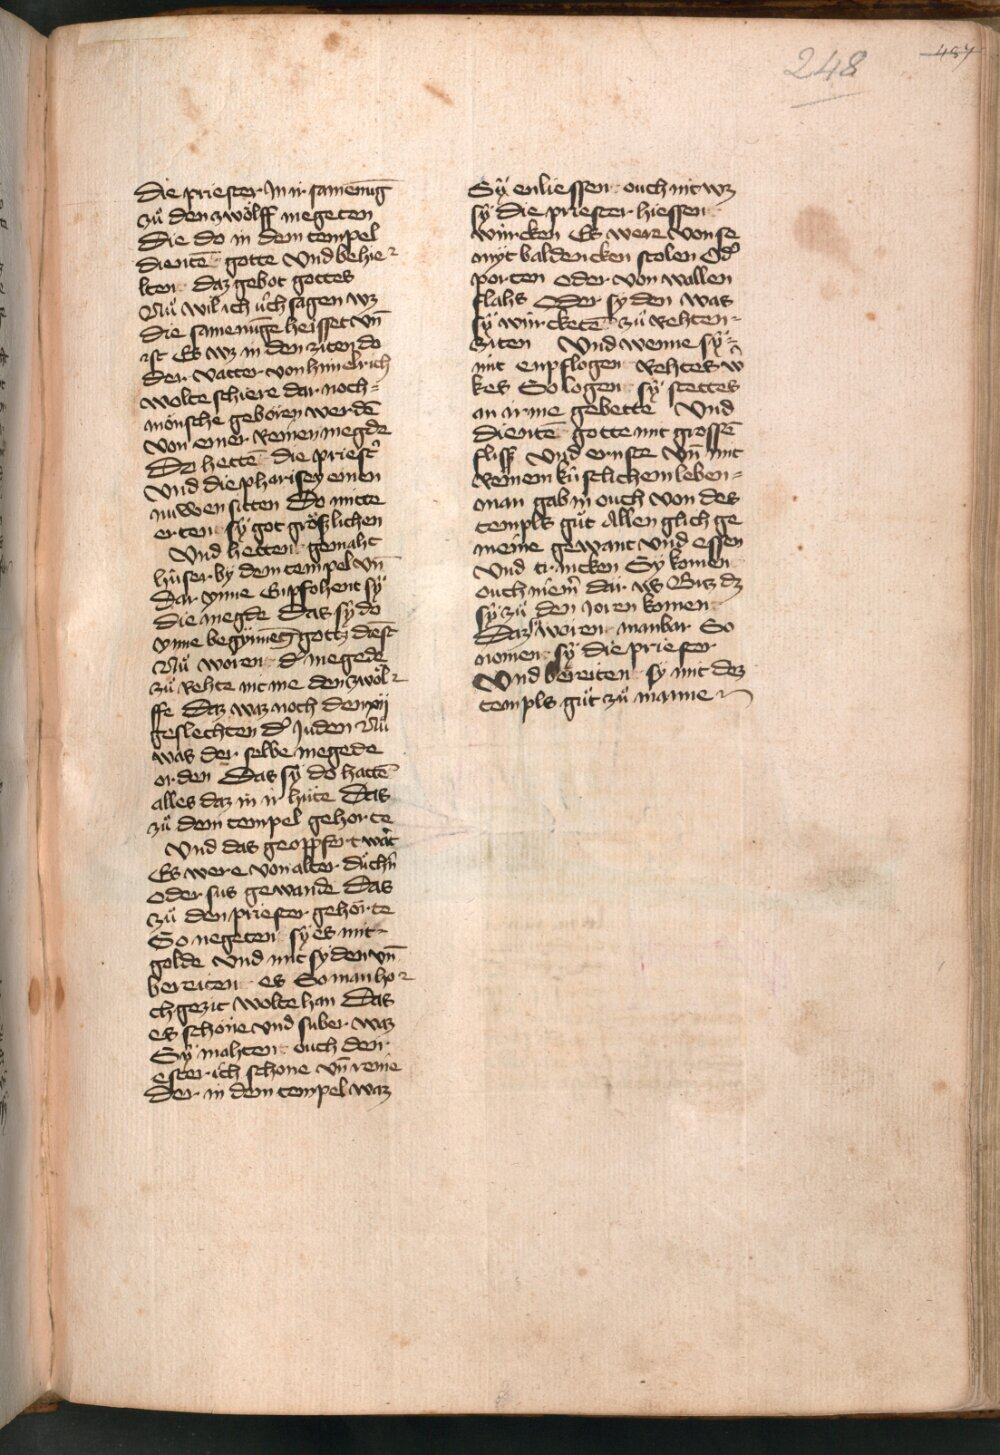 248
487
Die priester Jn ir samenūg
zů den zwölff megeten
die do in dem tempel
dientē gotte Vnd behie
lten daz gebot gottes
Nů wil ich üch sagen wz
die samenūge heisset vn̄
ist Es wz in den ziten do
der vatter von himelrich
wolte schiere dar noch
mönsche geboren werdē
von einer Reinen megde
Do hettē die priest'
Vnd die pharisey einen
nuwen sitten Do mitte
erten sÿ got größlichen
Vnd hetten gemaht
hüser by dem tempel vn̄
dar ynne Enpfohent sÿ
die megde Das sÿ do
ynne begynnent gottz diēst
Nů woren d' megede
zů Rehte nit me den zwöl
ffe Daz waz noch dem xij
geslechten d' Juden Nů
was der selbe megede
orden Das sÿ do hattē
alles daz in ir hüte Das
zů dem tempel gehorte
Vnd das geopffert wart
Es were von alter düchn̄
oder sus gewande Das
zů den priester gehörte
So negeten sÿ es mit
golde vnd mit syden vn̄
bereiten es So man ho
chgezit wolte han Das
es schöne vnd suber waz
Sÿ mahten ouch den
esterich schone vn̄ reine
der in dem tempel waz
Sÿ enliessen ouch nit wz
sÿ die priester hiessen
würcken Es were von se
myt baldencken stolen Od'
porten oder von wallen
flahs Oder syden was
sÿ würcketē zů Rehten
ziten Vnd wenne sÿ
nit enpflogen Rehtes w
kes So logen sÿ stettes
an irme gebette Vnd
dientē gotte mit grossē
fliss Vnd ernste Vn̄ mit
Reinem küslichem leben
man gab in ouch von des
templs gůt Allen glich ge
meine gewant vnd essen
Vnd trincken Sÿ komen
ouch niem̄ dar vs Bitz dz
sÿ zů den Joren komen
Daz woren manbar So
nomen sÿ die priester
Vnd bereiten sy mit dez
templs gůt zů manne